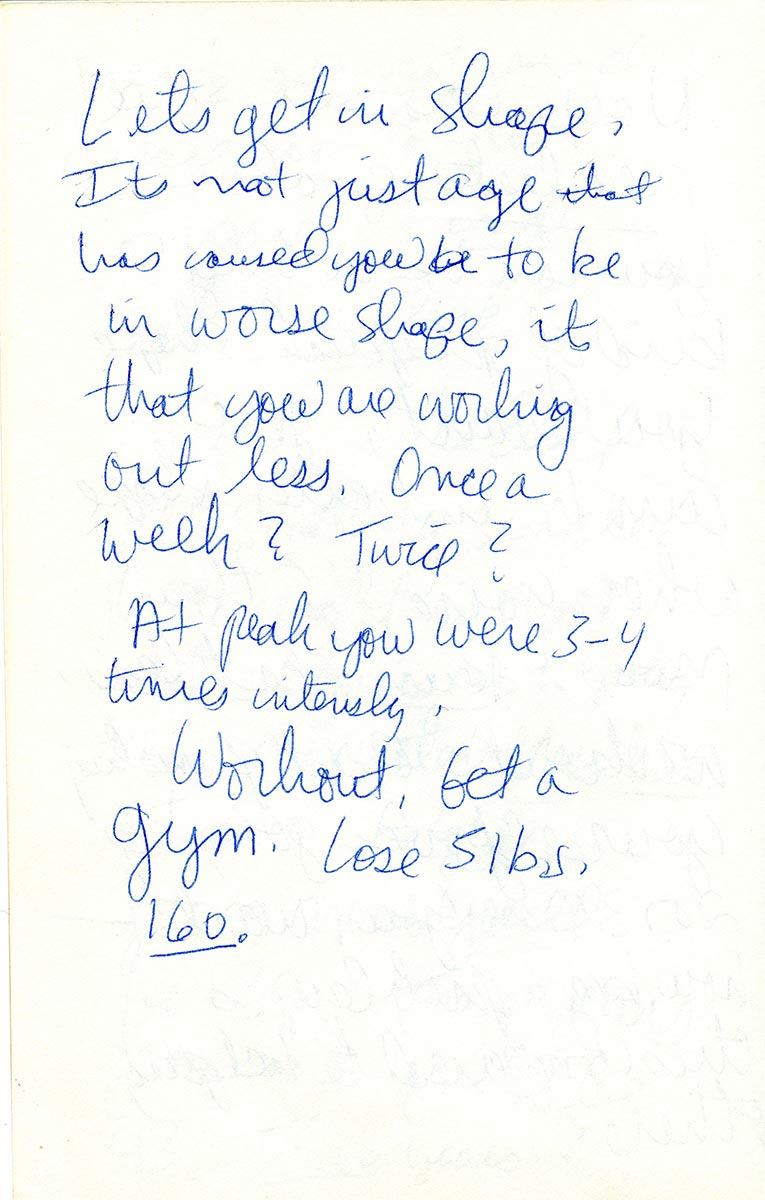 Lets get in shape.
Its not just age that
has caused you be to be
in worse shape, its
that you are working
out less. Once a
week? Twice?
At peak you were 3-4
times intensly.
Workout, Get a
gym. Lose 5 lbs.
160.